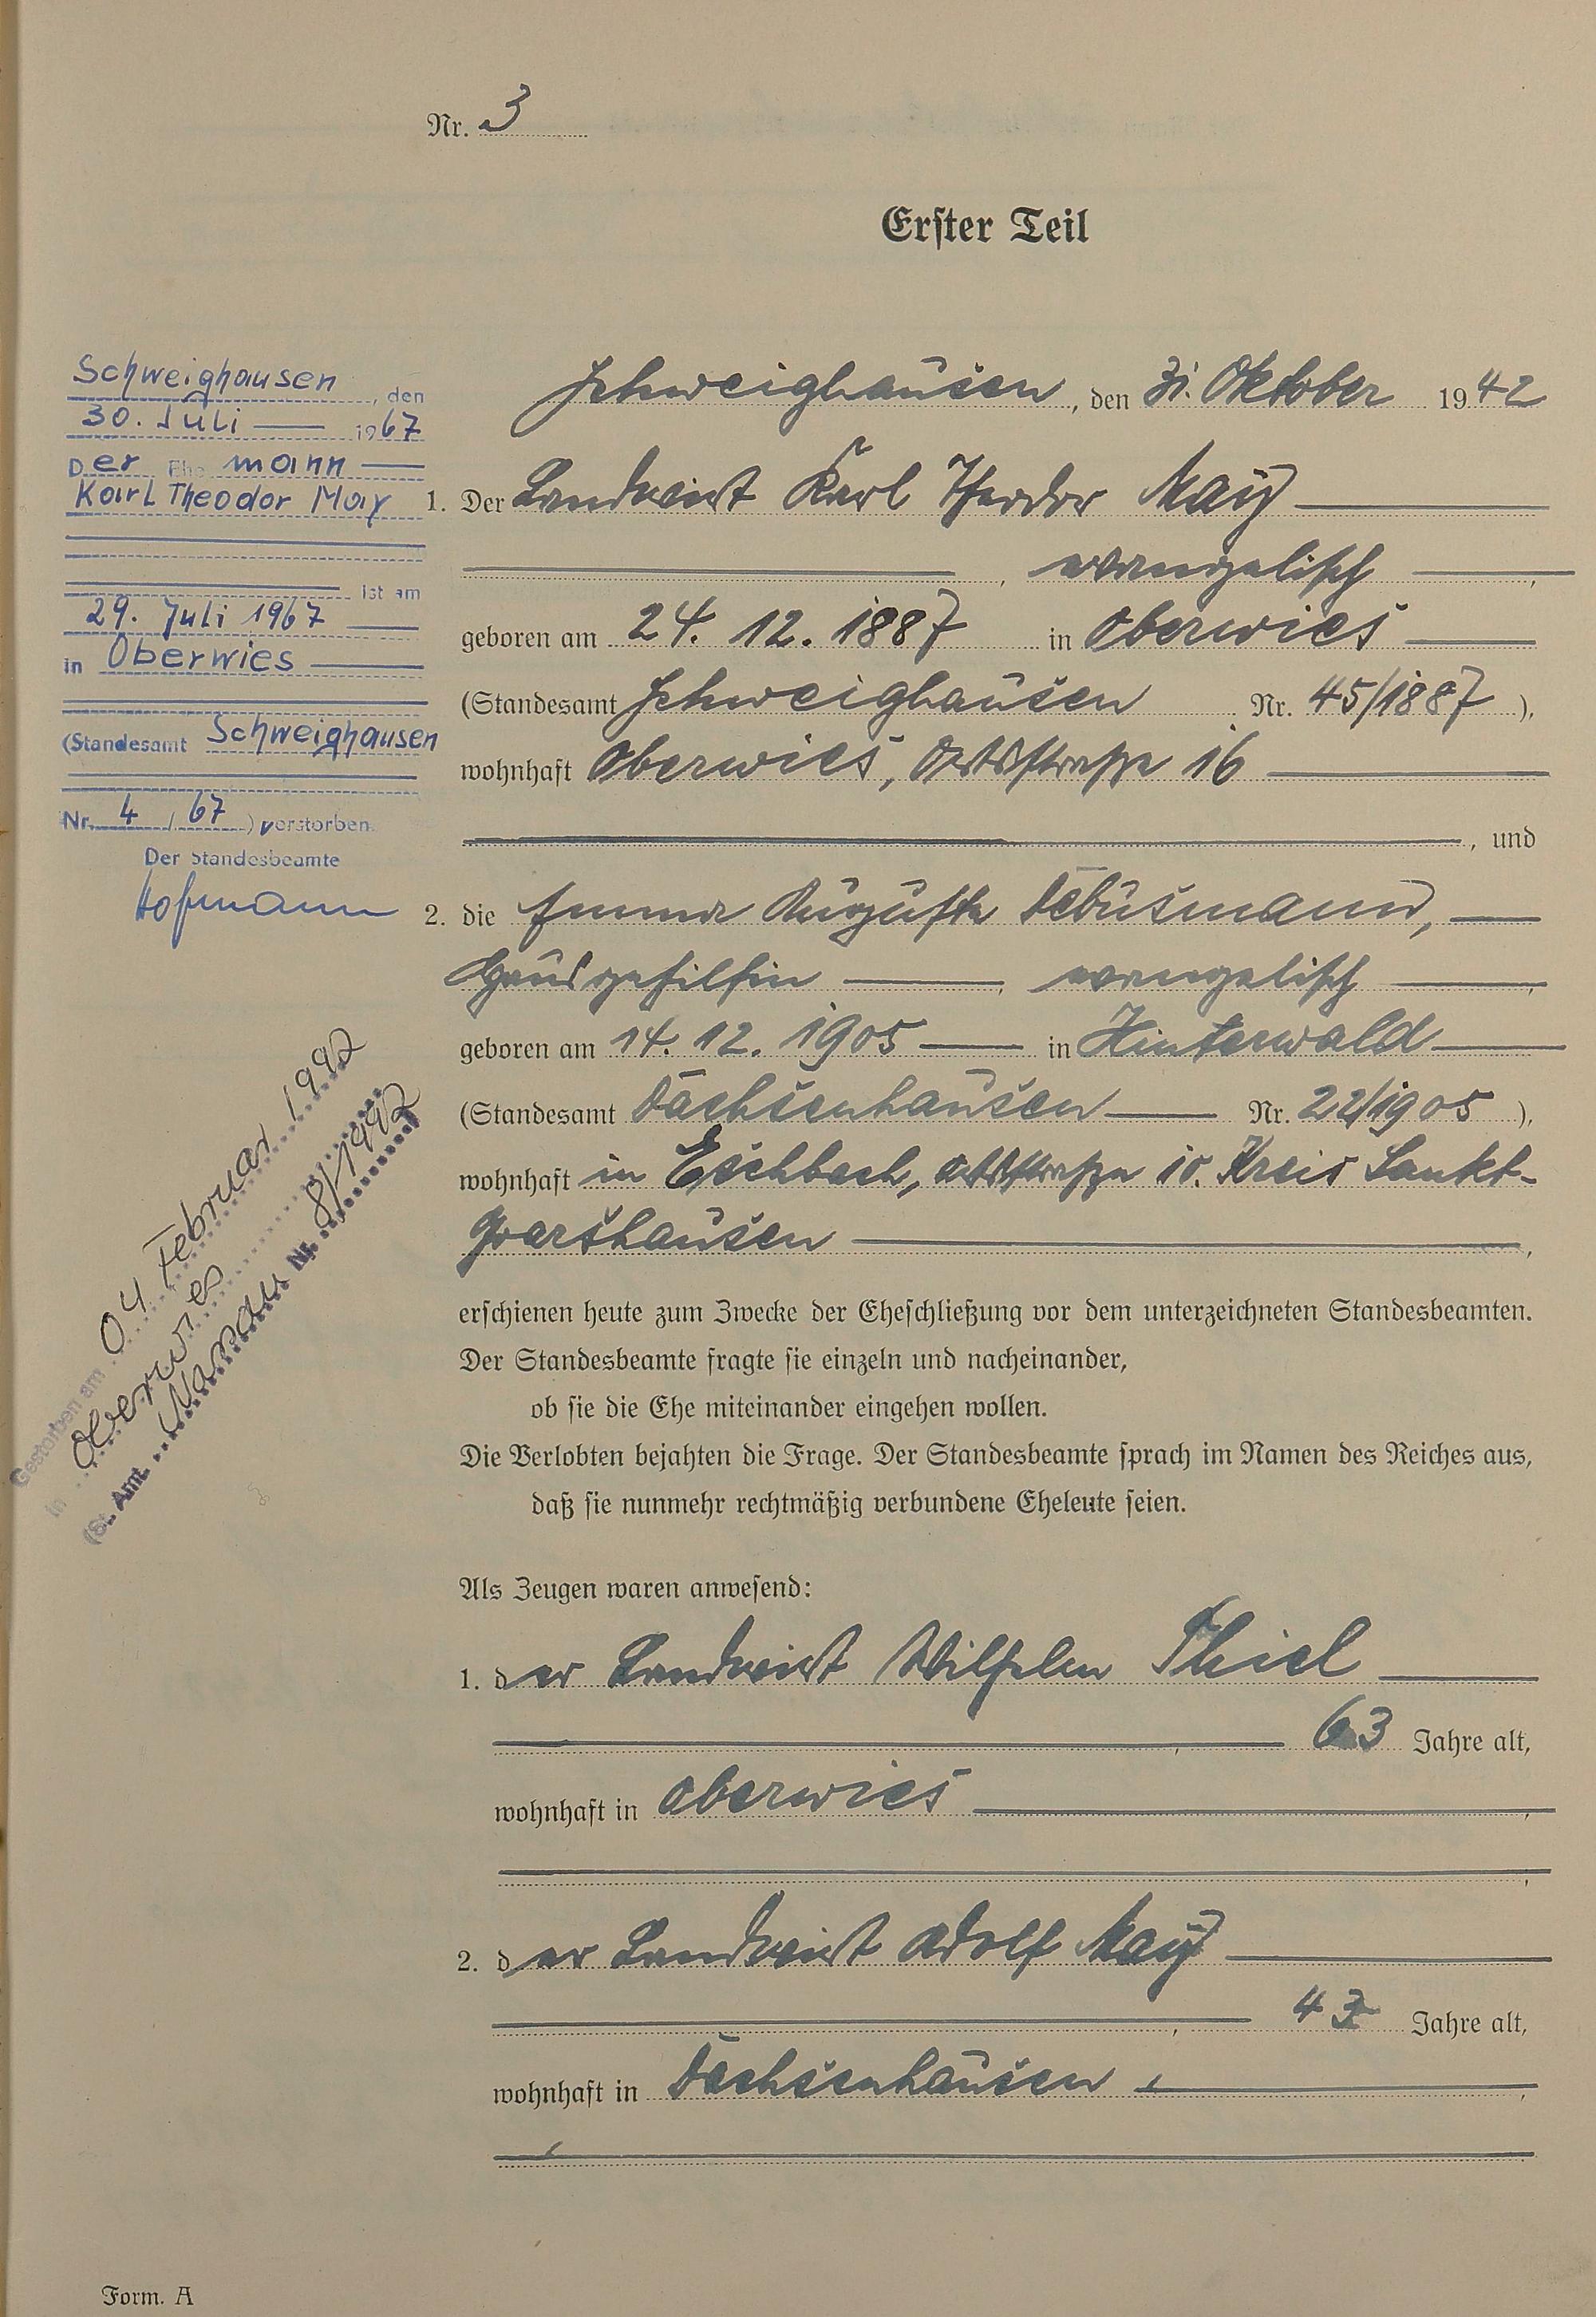 Nr. 3
Erster Teil
Schweighausen, den 31. Oktober 1942
1. Der Landwirt Karl Theodor May
, evangelisch,
geboren am 24. 12. 1887 in Oberwies
(Standesamt Schweighausen Nr. 45/1887),
wohnhaft Oberwies, Ortsstraße 16
, und
2. die Emma Auguste Debusmann,
Hausgehilfin, evangelisch,
geboren am 14. 12. 1905 in Hinterwald
(Standesamt Dachsenhausen Nr. 22/1905),
wohnhaft in Eschbach, Ortsstraße 10. Kreis Sankt-
Goarshausen,
erschienen heute zum Zwecke der Eheschließung vor dem unterzeichneten Standesbeamten.
Der Standesbeamte fragte sie einzeln und nacheinander,
ob sie die Ehe miteinander eingehen wollen.
Die Verlobten bejahten die Frage. Der Standesbeamte sprach im Namen des Reiches aus,
daß sie nunmehr rechtmäßig verbundene Eheleute seien.
Als Zeugen waren anwesend:
1. der Landwirt Wilhelm Thiel
, 63 Jahre alt,
wohnhaft in Oberwies,
2. der Landwirt Adolf May
, Jahre alt,
wohnhaft in Dachsenhausen,
Form. A
Schweighausen, den
30. Juli 1967
Der Ehemann
Karl Theodor May
ist am
29. Juli 1967
in Oberwies
(Standesamt Schweighausen
Nr. 4/67) verstorben.
Der Standesbeamte
Hofmann
Gestorben am 04. Februar 1992
in Oberwies
(St. Amt Nassau Nr. 8/1992